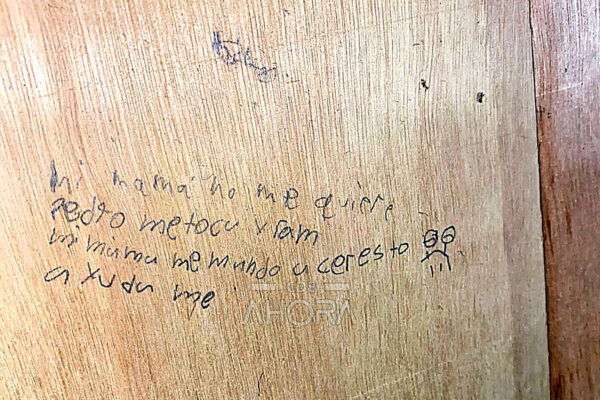 Mi mamá no me quiere
Pedro metoca y ram
mi mama me mando a ceresto
a xuda me
CDB
AHORA